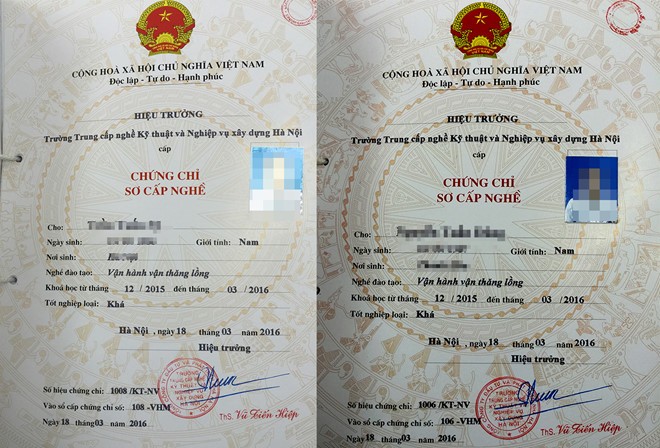 CỘNG HOÀ XÃ HỘI CHỦ NGHĨA VIỆT NAM
Độc lập - Tự do - Hạnh phúc
HIỆU TRƯỞNG
Trường Trung cấp nghề Kỹ thuật và Nghiệp vụ xây dựng Hà Nội
cấp
CHỨNG CHỈ
SƠ CẤP NGHỀ
Cho:
Ngày sinh: Giới tính: Nam
Nơi sinh:
Nghề đào tạo: Vận hành vận thăng lồng
Khoá học từ tháng 12 / 2015 đến tháng 03 / 2016
Tốt nghiệp loại: Khá
Hà Nội, ngày 18 tháng 03 năm 2016
Hiệu trưởng
TRƯỜNG
TRUNG CẤP NGHỀ
KỸ THUẬT VÀ
NGHIỆP VỤ
XÂY DỰNG
HÀ NỘI
Số hiệu chứng chỉ: 1008 /KT-NV
Vào sổ cấp chứng chỉ số: 108 -VHM
Ngày 18 tháng 03 năm 2016
ThS. Vũ Tiến Hiệp
CỘNG HOÀ XÃ HỘI CHỦ NGHĨA VIỆT NAM
Độc lập - Tự do - Hạnh phúc
HIỆU TRƯỞNG
Trường Trung cấp nghề Kỹ thuật và Nghiệp vụ xây dựng Hà Nội
cấp
CHỨNG CHỈ
SƠ CẤP NGHỀ
Cho:
Ngày sinh: Giới tính: Nam
Nơi sinh:
Nghề đào tạo: Vận hành vận thăng lồng
Khoá học từ tháng 12 / 2015 đến tháng 03 / 2016
Tốt nghiệp loại: Khá
Hà Nội, ngày 18 tháng 03 năm 2016
Hiệu trưởng
TRƯỜNG
TRUNG CẤP NGHỀ
KỸ THUẬT VÀ
NGHIỆP VỤ
XÂY DỰNG
HÀ NỘI
Số hiệu chứng chỉ: 1006 /KT-NV
Vào sổ cấp chứng chỉ số: 106 -VHM
Ngày 18 tháng 03 năm 2016
ThS. Vũ Tiến Hiệp